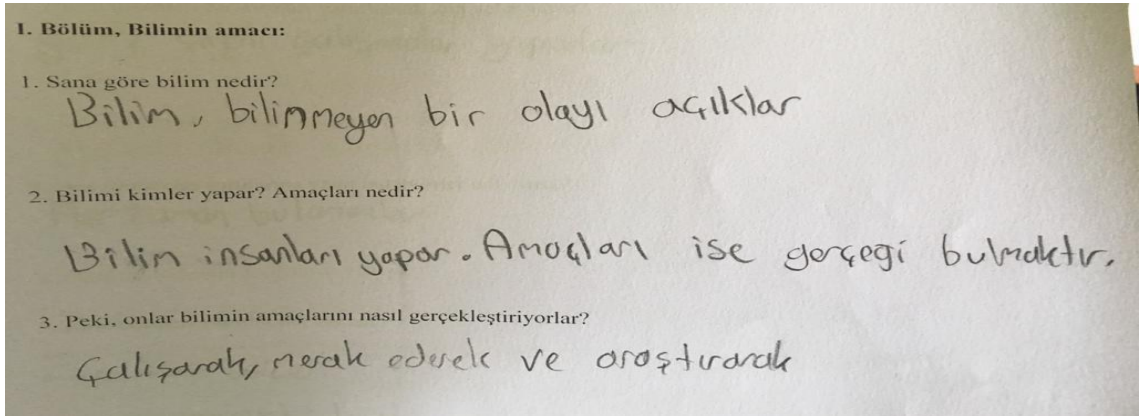 I. Bölüm, Bilimin amacı:
1. Sana göre bilim nedir?
Bilim, bilinmeyen bir olayı açıklar
2. Bilimi kimler yapar? Amaçları nedir?
Bilim insanları yapar. Amaçları ise gerçeği bulmaktır.
3. Peki, onlar bilimin amaçlarını nasıl gerçekleştiriyorlar?
Çalışarak, merak ederek ve araştırarak